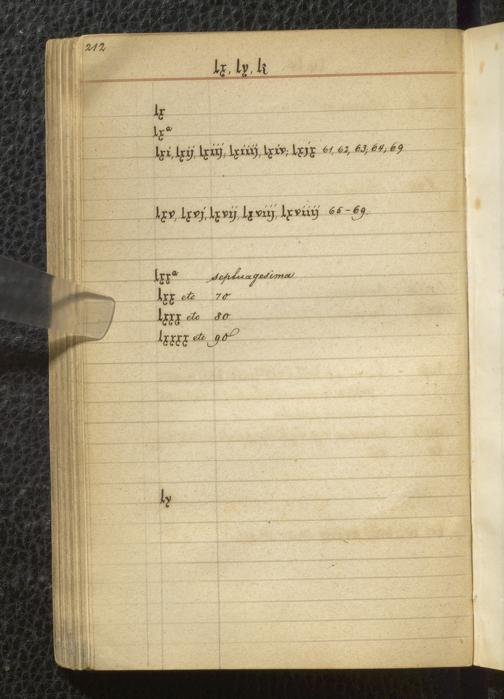 212
lx, ly, lz
lx
lxᵃ
lxi, lxij, lxiij, lxiiij, lxiv, lxjx 61, 62, 63, 64, 69
lxv, lxvj, lxvij, lxviij, lxviiij 65-69.
lxxᵃ septuagesima
lxx etc 70
lxxx etc 80
lxxxx etc 90
ly